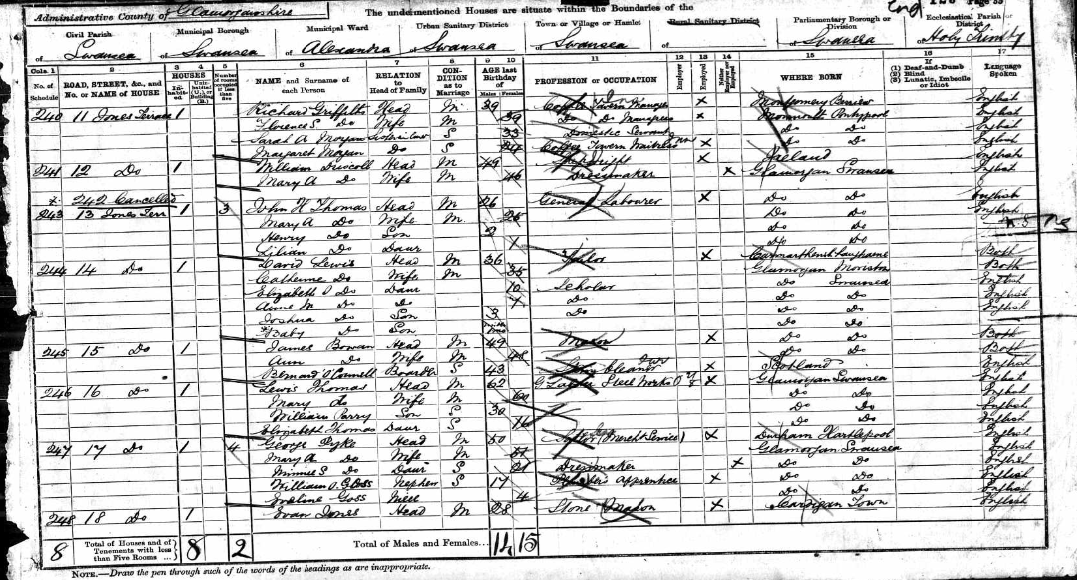 Administrative County of Glamorganshire The undermentioned Houses are situate within the Boundaries of the Page 33
Civil Parish Municipal Borough Municipal Ward Urban Sanitary District Town or Village or Hamlet Rural Sanitary District Parliamentary Borough or Division Ecclesiastical Parish or District
of Swansea of Swansea of Alexandra of Swansea of Swansea of of Swansea of Holy Trinity
Cols. 1 2 3 4 5 6 7 8 9 10 11 12 13 14 15 16 17
No. of Schedule ROAD, STREET, &c., and No. or NAME of HOUSE HOUSES Inhabited Uninhabited (U.) or Building (B.) Number of rooms occupied if less than five NAME and Surname of each Person RELATION to Head of Family CONDITION as to Marriage AGE last Birthday of Males Females PROFESSION or OCCUPATION Employer Employed WHERE BORN If (1) Deaf-and-Dumb (2) Blind (3) Lunatic, Imbecile or Idiot Language Spoken
240 11 Jones Terrace 1 Richard Griffiths Head M 39 Coffee Tavern Manager X Montgomery English
Florence S. Do Wife M 39 Do Do Manageress X Monmouth Pontypool English
Sarah A Morgan S 33 Domestic Servant Do Do English
Margaret Morgan Do S 24 Coffee Tavern Waitress X Do Do English
241 12 Do 1 William Driscoll Head M 49 X Ireland English
Mary A Do Wife M 46 Dressmaker X Glamorgan Swansea English
242 Cancelled
243 13 Jones Terr 1 3 John H Thomas Head M 26 General Labourer X Do Do English
Mary A Do Wife M 26 Do Do English
Henry Do Son 2 Do Do
Lilian Do Daur 1 Do Do
244 14 Do 1 David Lewis Head M 36 Tailor X Carmarthensh Laugharne Both
Catherine Do Wife M 35 Glamorgan Morriston Both
Elizabeth Do Daur 10 Scholar Do Swansea English
Anne M Do Do 7 Do Do Do English
Joshua Do Son 3 Do Do Do English
Baby Do Son Do Do
245 15 Do 1 James Bowan Head M 49 Mason X Do Do Both
Ann Do Wife M 48 Do Do Both
Bernard O'Connell Boarder S 43 Cleaner X Scotland English
246 16 Do 1 Lewis Thomas Head M 62 Steel Works X Glamorgan Swansea English
Mary do Wife M 60 Do Do English
William Parry Son S 30 Do Do English
Elizabeth Thomas Daur S 16 Do Do English
247 17 Do 1 4 George Pyke Head M 50 (Mercht Service) X Durham Hartlepool English
Mary A Do Wife M 51 Glamorgan Swansea English
Minnie S Do Daur S 21 Dressmaker X Do Do English
William A. Goss Nephew S 17 Apprentice X Do Do English
Eveline Goss Niece 4 Do Do English
248 18 Do 1 Evan Jones Head M 28 Stone Mason X Cardigan Town English
8 Total of Houses and of Tenements with less than Five Rooms 8 2 Total of Males and Females 14 15
NOTE.—Draw the pen through such of the words of the headings as are inappropriate.